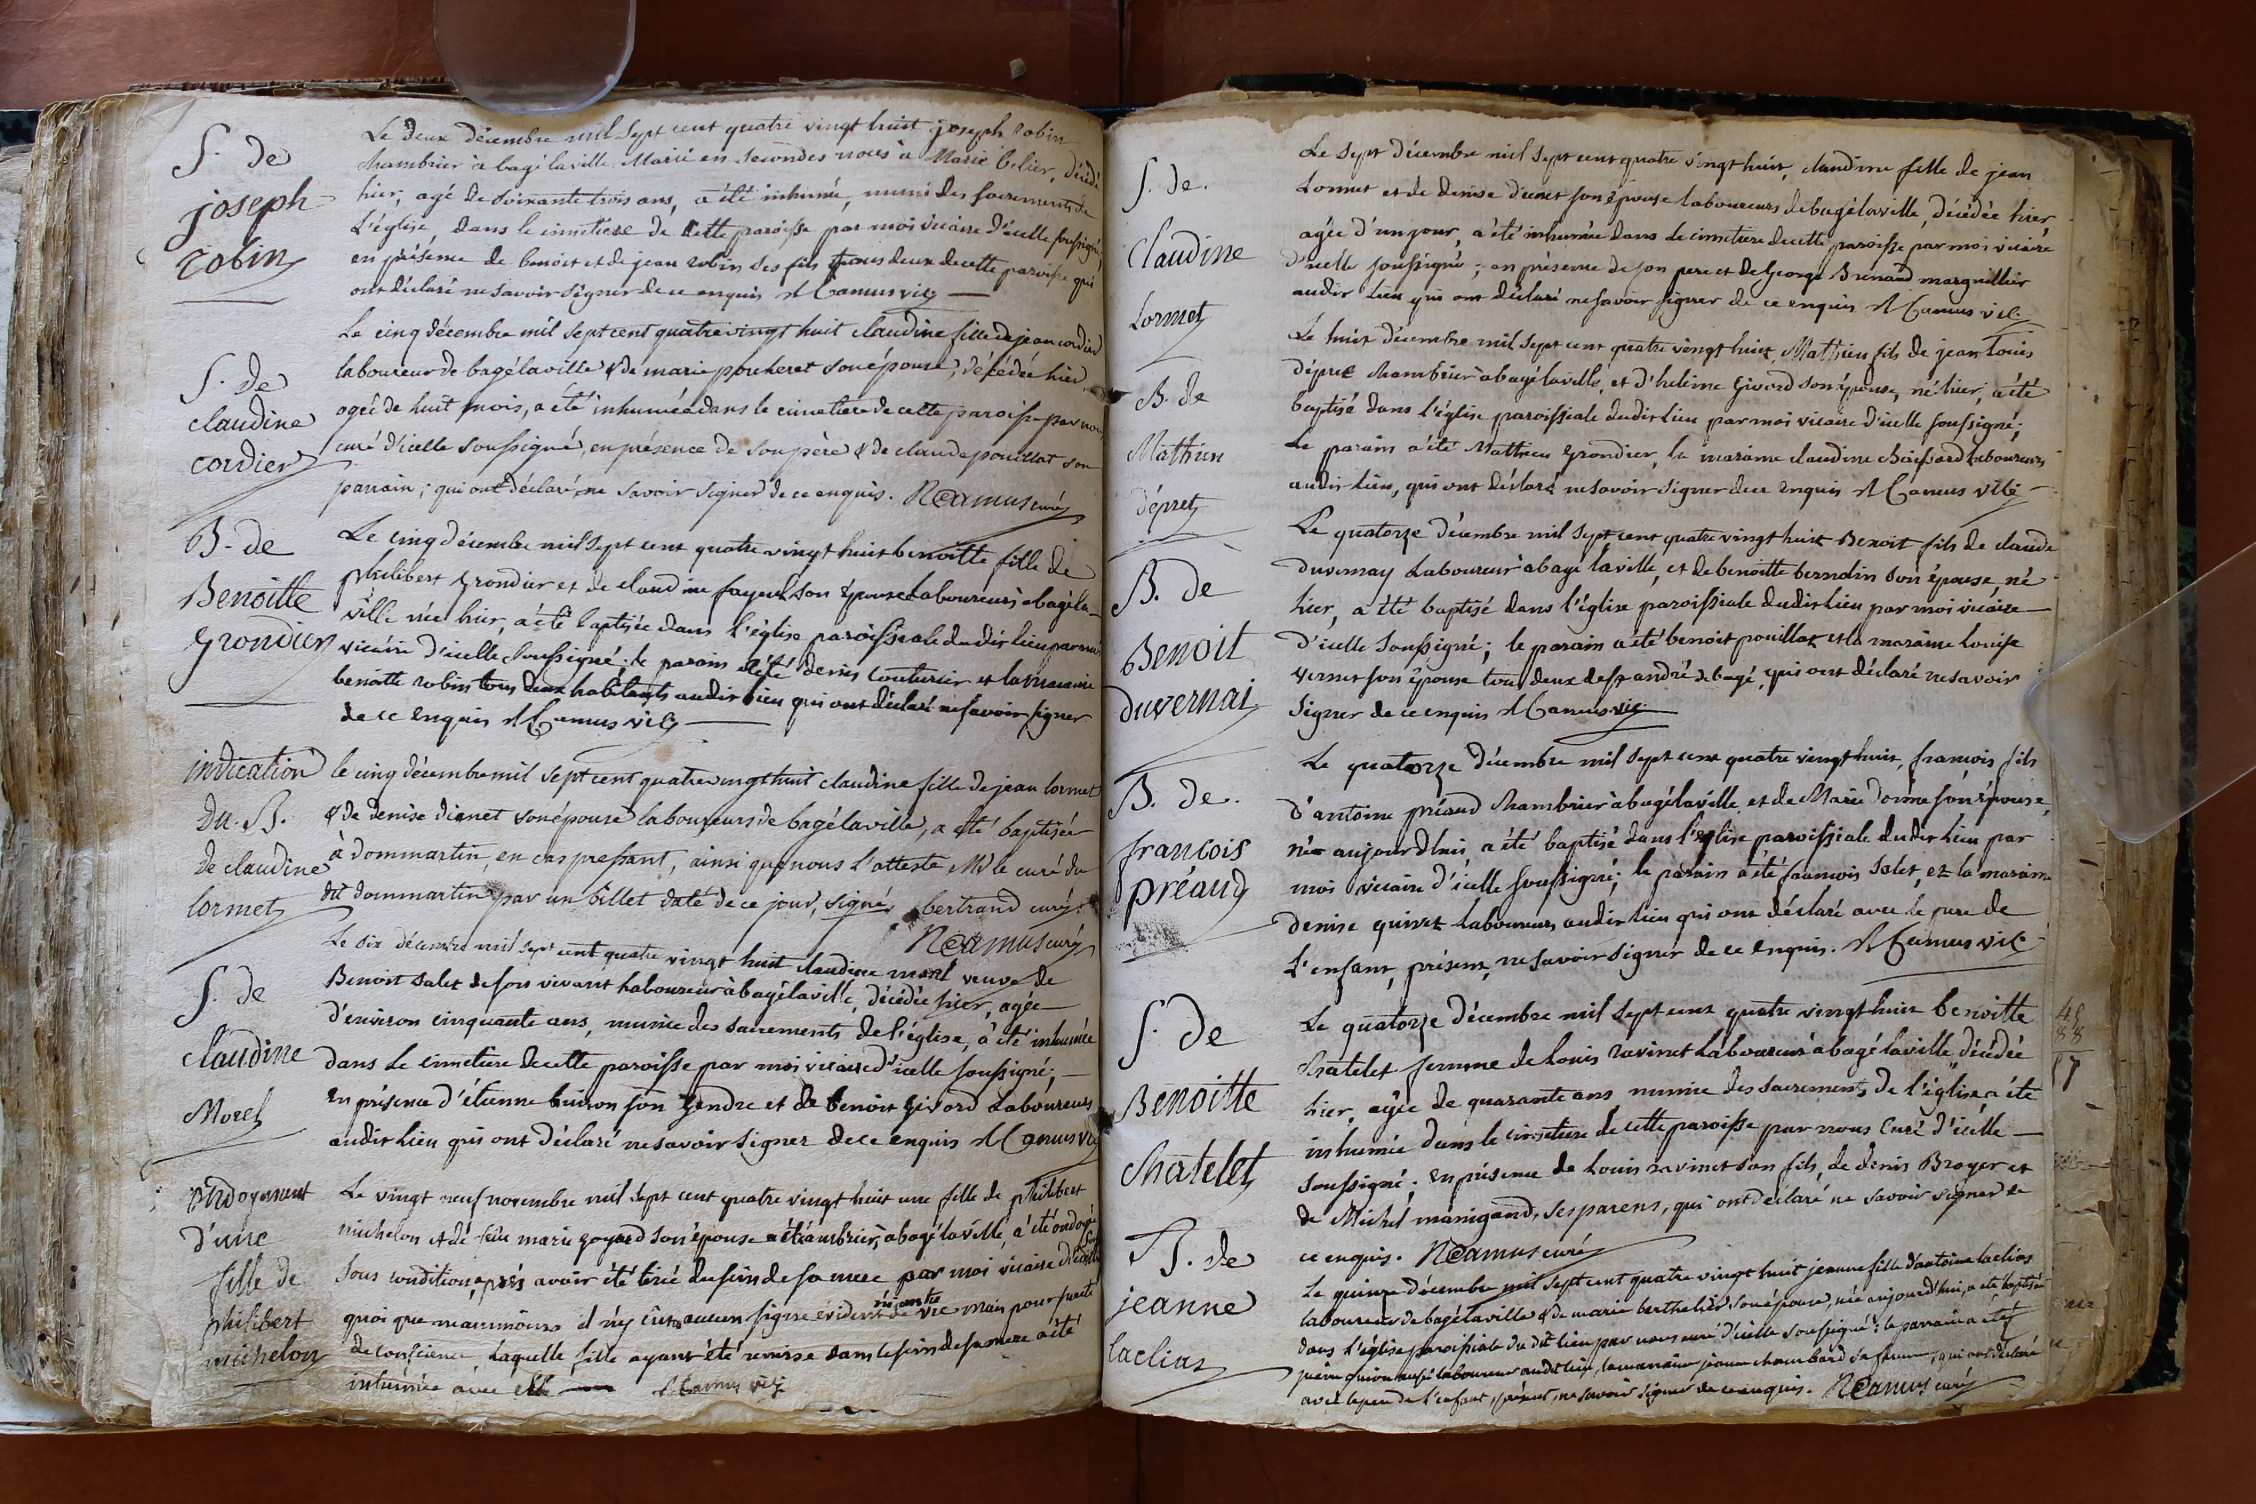 S. de
joseph
robin
Le deux décembre mil sept cent quatre vingt huit joseph robin
chambrier à bagé laville marié en secondes noces à Marie belier, décédé
hier, agé de soixante trois ans, a été inhumé, muni des sacrements de
L'église, dans le cimetiere de cette paroisse par moi vicaire d'icelle soussigné,
en présence de benoit et de jean robin ses fils tous deux de cette paroisse qui
ont déclaré ne savoir signer de ce enquis Camus vic
S. de
claudine
cordier
Le cinq décembre mil sept cent quatre vingt huit claudine fille de jean cordier
laboureur de bagélaville & de marie poncheret son épouse, décédée hier
agée de huit mois, a été inhumée dans le cimetiere de cette paroisse par nous
curé d'icelle soussigné, en présence de son père & de claude pouillat son
parrain; qui ont déclaré ne savoir signer de ce enquis. N Camus curé
B. de
Benoitte
grondier
Le cinq décembre mil sept cent quatre vingt huit benoitte fille de
philibert grondier et de claudine fayeul son épouse laboureurs à bagé la
ville née hier, a été baptisée dans l'église paroissiale dudit lieu par moi
vicaire d'icelle soussigné; le parain a été denis couturier et la maraine
benoitte robin tous deux habitants audit lieu qui ont déclaré ne savoir signer
de ce enquis Camus vic
indication
du B.
de claudine
lormet
le cinq décembre mil sept cent quatre vingt huit claudine fille de jean lormet
& de denise dignet son épouse laboureurs de bagé laville, a été baptisée
à dommartin, en cas pressant, ainsi que nous l'atteste Mr le curé du
dit dommartin par un billet daté de ce jour, signé bertrand curé.
N Camus curé
S. de
claudine
Morel
Le six décembre mil sept cent quatre vingt huit claudine morel veuve de
Benoit Salet de son vivant laboureur à bagé laville, décédée hier, agée
d'environ cinquante ans, munie des sacrements de l'église, a été inhumée
dans le cimetiere de cette paroisse par moi vicaire d'icelle soussigné;
en présence d'étienne buiron son gendre et de benoit givord laboureurs
audit lieu qui ont déclaré ne savoir signer de ce enquis Camus vic
ondoyement
d'une
fille de
philibert
michelon
Le vingt neuf novembre mil sept cent quatre vingt huit une fille de philibert
michelon et de feüe marie goyard son épouse chambrier, à bagé laville, a été ondoyé
sous condition, après avoir été tirée du sein de sa mere par moi vicaire
quoi que neanmoins il n'y eût aucun signe évident de vie mais pour sureté
de conscience, laquelle fille ayant été remise dans le sein de sa mere a été
inhumée avec elle Camus vic
S. de
Claudine
Lormet
Le sept décembre mil sept cent quatre vingt huit, claudine fille de jean
Lormet et de denise dignet son épouse laboureurs de bagé laville, décédée hier,
agée d'un jour, a été inhumée dans le cimetiere de cette paroisse par moi vicaire
d'icelle soussigné; en présence de son pere et de George Brenand marguillier
audit lieu qui ont déclaré ne savoir signer de ce enquis Camus vic
B. de
Mathieu
dépret
Le huit décembre mil sept cent quatre vingt huit, Mathieu fils de jean Louis
dépret chambrier à bagé laville, et d'helène givord son épouse, né hier, a été
baptisé dans l'église paroissiale dudit lieu par moi vicaire d'icelle soussigné;
Le parain a été Mathieu grondier, la maraine claudine Boissard laboureurs
audit lieu, qui ont déclaré ne savoir signer de ce enquis Camus vic
B. de
Benoit
duvernai
Le quatorze décembre mil sept cent quatre vingt huit Benoit fils de claude
duvernay Laboureur à bagé laville, et de benoitte bernolin son épouse, né
hier, a été baptisé dans l'église paroissiale dudit lieu par moi vicaire
d'icelle soussigné; le parain a été benoit pouillat et la maraine Louise
vernet son épouse tous deux de st andré de bagé, qui ont déclaré ne savoir
signer de ce enquis Camus vic
B. de
françois
préaud
Le quatorze décembre mil sept cent quatre vingt huit, françois fils
d'antoine préaud chambrier à bagé laville et de Marie dorme son épouse,
né aujourdhui, a été baptisé dans l'église paroissiale dudit lieu par
moi vicaire d'icelle soussigné; le parain a été francois Salet, et la maraine
denise guinet laboureurs audit lieu qui ont déclaré avec le pere de
L'enfant, présent, ne savoir signer de ce enquis. Camus vic
S. de
Benoitte
Chatelet
Le quatorze décembre mil sept cent quatre vingt huit benoitte
chatelet femme de Louis ravinet laboureur à bagé laville décédée
hier, agée de quarante ans munie des sacrements de l'église a été
inhumée dans le cimetiere de cette paroisse par nous curé d'icelle
soussigné; en présence de Louis ravinet son fils, de denis Broyer et
de Michel manigand, ses parens, qui ont déclaré ne savoir signer de
ce enquis. N Camus curé
B. de
jeanne
laclias
Le quinze décembre mil sept cent quatre vingt huit jeanne fille d'antoine laclias
laboureur de bagélaville & de marie berthelier son épouse, née aujourd'hui, a été baptisée
dans l'église paroissiale du dit lieu par nous curé d'icelle soussigné: le parrain a été
laboureur audit lieu, la marraine jeanne chambard sa femme, qui ont déclaré
avec le pere de l'enfant, présent, ne savoir signer de ce enquis. N Camus curé